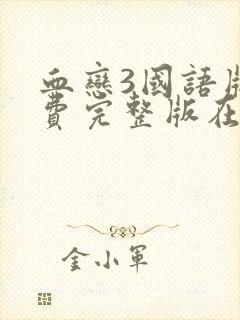 血戀3國語版
費完整版在
金小軍